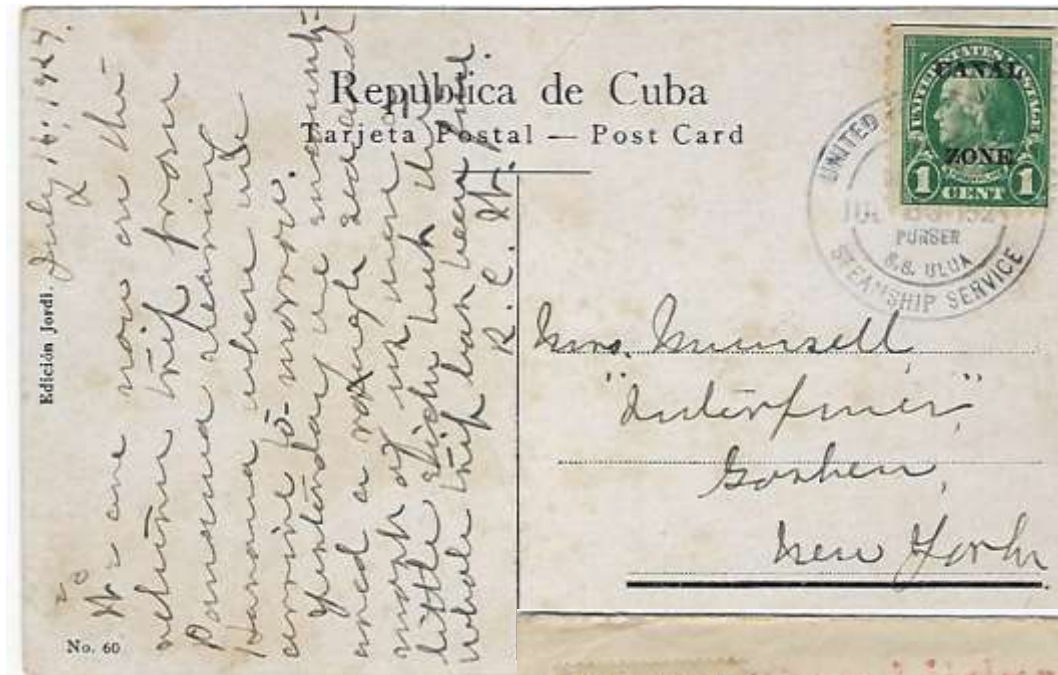 República de Cuba
Tarjeta Postal — Post Card
Edición Jordi.
No. 60
July 16, 1927.
We are now on the
return trip from
Panama nearing
Havana where we
arrive to-morrow.
Yesterday we encount-
ered a rough sea and
most of us were a
little sick but the
whole trip has been fine.
R. C. H.
UNITED STATES POSTAGE
CANAL
ZONE
1 CENT 1
UNITED
PURSER
S.S. ULUA
STEAMSHIP SERVICE
Mrs. Munsell,
Goshen,
New York